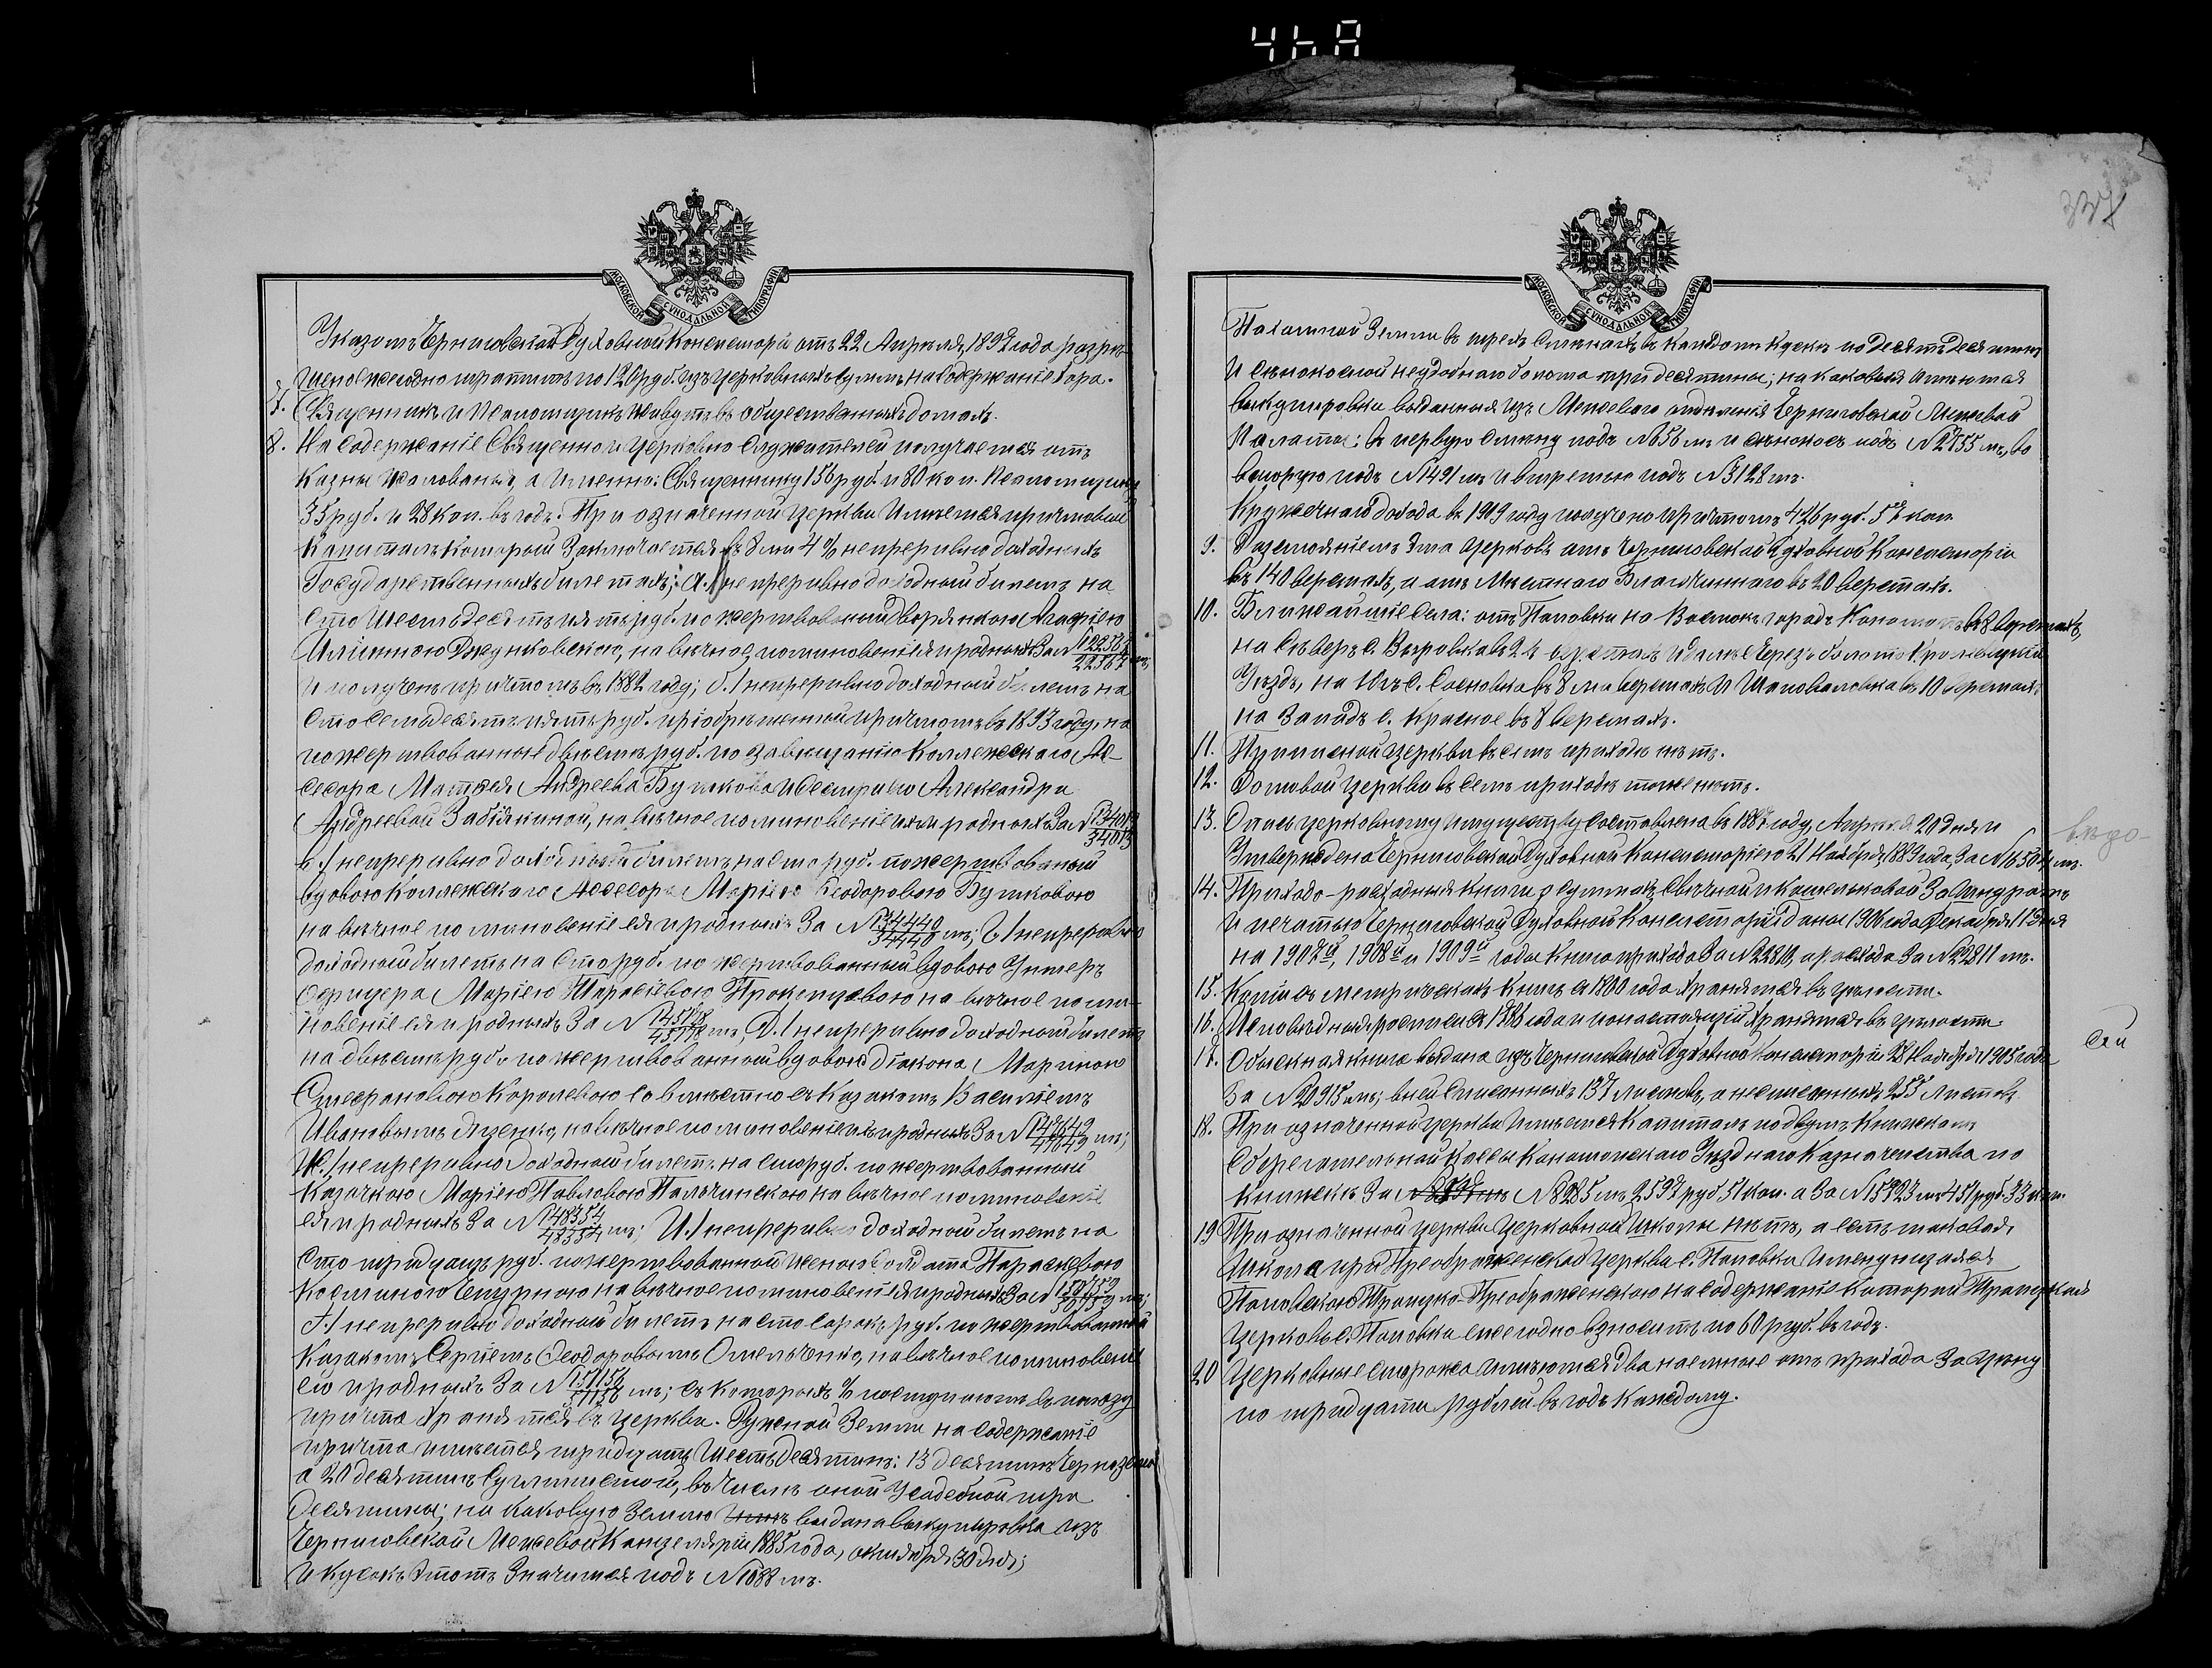 337
МОСКОВСКОЙ СУНОДАЛЬНОЙ ТИПОГРАФІИ
Указомъ Черниговской Духовной Консисторіи отъ 22 Апрѣля 1892 года разрѣ-
шено ежегодно тратить по 120 руб. изъ церковныхъ суммъ на содержаніе хора.
7. Священникъ и Псаломщикъ живутъ въ общественныхъ домахъ.
8. На содержаніе Священно и Церковно служителей получается отъ
Казны жалованья, а именно: Священнику 156 руб. и 80 коп. Псаломщику
35 руб. и 28 коп. въ годъ. При означенной церкви имѣется причтовый
Капиталъ который заключается въ 8ми 4% непрерывно доходныхъ
Государственныхъ билетахъ: а./ непрерывно доходный билетъ на
сто шестьдесятъ пять руб. пожертвованный дворянкою Агафіею
Ильиною Джунковскою, на вѣчное поминовеніе ея и родныхъ За №
и полученъ причтомъ въ 1882 году; б./ непрерывно доходный билетъ на
сто семьдесятъ пять руб. пріобрѣтенный причтомъ въ 1893 году, на
пожертвованные двѣсти руб. по завѣщанію Коллежскаго Ас-
сесора Матвея Андреева Буткова и сестры его Александры
Андреевой Забіякиной, на вѣчное поминовеніе ихъ и родныхъ За № 134013/34013
в./ непрерывно доходный билетъ на сто руб. пожертвованый
вдовою Коллежскаго Ассесора Маріею Ѳеодоровою Бутковою
на вѣчное поминовеніе ея и родныхъ За № 134440/34440 мъ; Г./ непрерывно
доходный билетъ на сто руб. пожертвованный вдовою Унтеръ
офицера Маріею Тарасіевою Прокопцевою на вѣчное поми-
новеніе ея и родныхъ За № 145718/45718 мъ; Д./ непрерывно доходный билетъ
на двѣсти руб. пожертвованной вдовою діакона Мариною
Стефановою Королевою совмѣстно съ Казакомъ Василіемъ
Ивановымъ на вѣчное поминовеніе ихъ и родныхъ За № 147649/47649 мъ;
Ж./ непрерывно доходный билетъ на сто руб. пожертвованный
Казачкою Маріею Павловою Пальчинскою на вѣчное поминовеніе
ея и родныхъ За № 148354/48354 мъ; И./ непрерывно доходной билетъ на
сто тридцать руб. пожертвованной женою солдата Параскевою
Косминою Чепурною на вѣчное поминовеніе ея и родныхъ За №
I./ непрерывно доходный билетъ на сто сорокъ руб. пожертвованный
Казакомъ Сергіемъ Ѳеодоровымъ Омельченко, на вѣчное поминовеніе
его и родныхъ За № 151156/51156 мъ; съ которыхъ % поступаютъ въ пользу
причта хранятся въ церкви. Ружной земли на содержаніе
причта имѣется тридцать шесть десятинъ: 13 десятинъ чернозема
а 20 десятинъ суглинистой, въ числѣ оной усадебной три
десятины; на каковую землю выдана выкупировка изъ
Черниговской Межевой Канцеляріи 1885 года, октября 30 дня;
и кусокъ этотъ значится подъ № 1088 мъ.
МОСКОВСКОЙ СУНОДАЛЬНОЙ ТИПОГРАФІИ
Пахатной земли въ трехъ сменахъ въ каждомъ куске по десять десятинъ
и сѣнокосной неудобнаго болота три десятины; на каковыя имѣются
выкупировки выданныя изъ Межеваго отдѣленія Черниговской Межевой
Палаты: въ первую смену подъ № 656 мъ и сѣнокосъ подъ № 2755 мъ, во
вторую подъ № 1491 мъ и въ третью подъ № 3128 мъ.
Кружечнаго дохода въ 1909 году получено причтомъ 426 руб. 57 коп.
9. Разстояніемъ эта церковь отъ Черниговской Духовной Консисторіи
въ 140 верстахъ, а отъ мѣстнаго Благочиннаго въ 20 верстахъ.
10. Ближайшіе села: отъ Поповки на Востокъ городъ Конотопъ въ 8 верстахъ,
на Сѣверъ с. Вировка въ 2 верстахъ и далѣе черезъ болото Кролевецкій
Уѣздъ, на Югъ с. Сосновка въ 8ми верстахъ и Шаповаловка въ 10 верстахъ
на Западъ с. Красное въ 8 верстахъ.
11. Приписной церкви въ семъ приходѣ нѣтъ.
12. Домовой церкви въ семъ приходѣ тоже нѣтъ.
13. Опись церковному имуществу составлена въ 1887 году, Апрѣля 20 дня и
Утверждена Черниговской Духовной Консисторіею 21 Ноября 1889 года, За № 16504 мъ.
14. Приходо-расходныя книги о суммахъ свѣчной и кошельковой За шнуромъ
и печатью Черниговской Духовной Консисторіи даны 1906 года Декабря 11 дня
на 1907й, 1908й и 1909й годы книга прихода За № 22810, а расхода За № 22811 мъ.
15. Копіи съ метрическихъ книгъ съ 1800 года хранятся въ цѣлости.
16. Исповѣдныя росписи съ года и по настоящій хранятся въ цѣлости.
17. Обыскная книга выдана изъ Черниговской Духовной Консисторіи 28 Ноября 1905 года
За № 20915 мъ; въ ней списанныхъ 137 листовъ, а несписанныхъ 255 листовъ
18. При означенной церкви имѣется капиталъ по двумъ книжкамъ
Сберегательной кассы Конотопскаго Уѣзднаго Казначейства по
книжкѣ За № 8285 мъ 2597 руб. 51 коп. а За № 15923 мъ 451 руб. 33 коп.
19 При означенной церкви церковной школы нѣтъ, а есть таковая
школа при Преображенской церкви с. Поповка именующаяся
Поповскою Троицко-Преображенскою на содержаніе которой Троицкая
церковь с. Поповка ежегодно взноситъ по 60 руб. въ годъ.
20 Церковные сторожа имѣются два наемные отъ прихода За цѣну
по тридцати рублей въ годъ каждому.